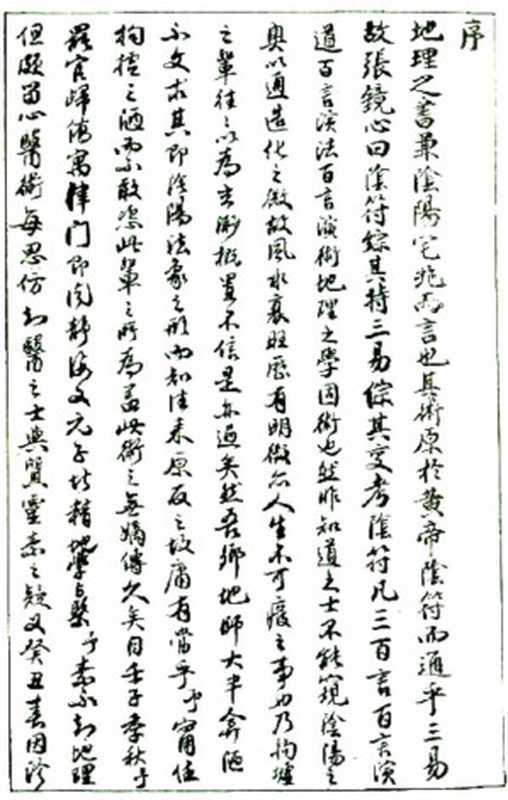 序
地理之書兼陰陽宅兆而言也其術原於黃帝陰符而通乎三易
故張鏡心曰陰符綜其持三易綜其变考陰符凡三百言百言演
道百言演法百言演術地理之學固術也然非知道之士不能窺陰陽之
奧以通造化之微故風水衰旺歷有明徵亦人生不可廢之事也乃拘墟
之輩往往以為玄渺擬置不信是亦過矣然吾鄉地師大半弇陋
不文求其即陰陽法象之形而知往來原反之故庸有當乎予甯任
拘墟之陋而不敢恣此輩之所為蓋此術之無嫡傳久矣自壬子季秋予
罷官歸僑寓津门即闻静海文元子廷精地學而予素不知地理
但頗留心醫術每思仿知醫之士與質靈素之疑又癸丑春因診